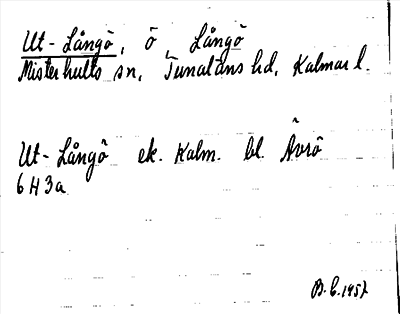 Ut-Långö, ö, Långö
Misterhults sn, Tunaläns hd, Kalmar l.
Ut-Långö ek. Kalm. bl. Ävrö
6 H 3 a
B.C. 1957